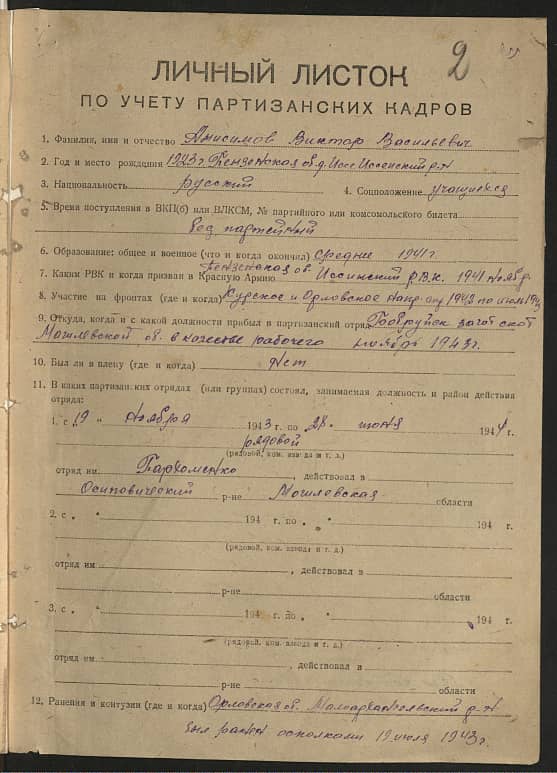 2
ЛИЧНЫЙ ЛИСТОК
ПО УЧЕТУ ПАРТИЗАНСКИХ КАДРОВ
1. Фамилия, имя и отчество Анисимов Виктор Васильевич
2. Год и место рождения 1923 г. Пензенская об. д. Исса Иссенский р-н
3. Национальность русский 4. Соцположение учащийся
5. Время поступления в ВКП(б) или ВЛКСМ, № партийного или комсомольского билета
без партейный
6. Образование: общее и военное (что и когда окончил) среднее 1941 г.
7. Каким РВК и когда призван в Красную Армию Пензенская об. Иссинский р.в.к. 1941 ноябр.
8. Участие на фронтах (где и когда) Курское и Орловское напр. 1942 по июль 1943
9. Откуда, когда и с какой должности прибыл в партизанский отряд Бобруйск загот скот
Могилевской об. в качестве рабочего ноябрь 1943 г.
10. Был ли в плену (где и когда) Нет
11. В каких партизанских отрядах (или группах) состоял, занимаемая должность и район действия
отряда:
1. с „19 " ноября 1943 г. по „28 " июня 1944 г.
рядовой
(рядовой, ком. взвода и т. д.)
отряд им. Пархоменко, действовал в
Осиповический р-не Могилевская области
2. с „ " 194 г. по „ " 194 г.
(рядовой, ком. взвода и т. д.)
отряд им , действовал в
р-не области
3. с „ " 194 г. по „ " 194 г.
(рядовой, ком. взвода и т. д.)
отряд им. , действовал в
р-не области
12. Ранения и контузии (где и когда) Орловская об. Малоархангельский р-н
был ранен осколками 19 июля 1943 г.